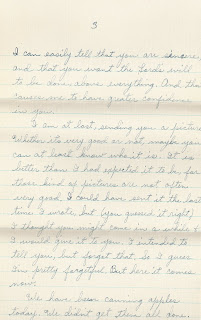 3
I can easily tell that you are sincere,
and that you want the Lords will
to be done above everything. And that
causes me to have greater confidence
in you.
I am at last, sending you a picture.
Whether its very good or not, maybe you
can at least know who it is. It is
better than I had expected it to be, for
those kind of pictures are not often
very good. I could have sent it the last
time I wrote, but (you guessed it right)
I thought you might come in a while &
I would give it to you. I intended to
tell you, but forgot that, so I guess
I'm pretty forgetful. But here it comes
now.
We have been canning apples
today. We didnt get them all done,